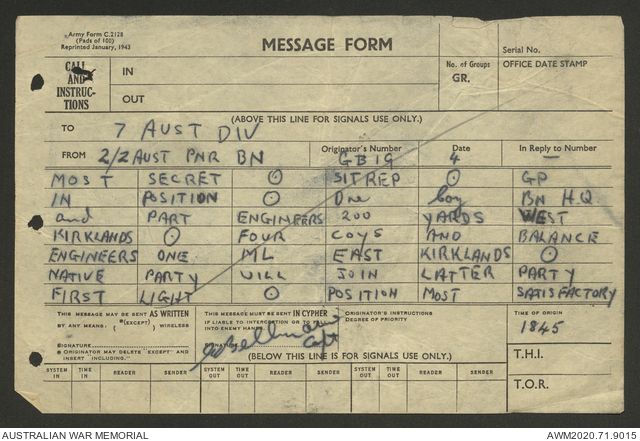 Army Form C.2128
(Pads of 100)
Reprinted January, 1943
MESSAGE FORM
Serial No.
CALL AND INSTRUCTIONS
IN
OUT
No. of Groups
GR.
OFFICE DATE STAMP
(ABOVE THIS LINE FOR SIGNALS USE ONLY.)
TO 7 AUST DIV
FROM 2/2 AUST PNR BN Originator's Number GB19 Date 4 In Reply to Number —
MOST SECRET ⊙ SITREP ⊙ GP
IN POSITION ⊙ One Coy BN H.Q
and PART ENGINEERS 200 YARDS WEST
KIRKLANDS ⊙ FOUR COYS AND BALANCE
ENGINEERS ONE ML EAST KIRKLANDS ⊙
NATIVE PARTY WILL JOIN LATTER PARTY
FIRST LIGHT ⊙ POSITION MOST SATISFACTORY
THIS MESSAGE MAY BE SENT AS WRITTEN
BY ANY MEANS. { (EXCEPT) } WIRELESS
SIGNATURE
* ORIGINATOR MAY DELETE "EXCEPT" AND INSERT INCLUDING."
THIS MESSAGE MUST BE SENT IN CYPHER
IF LIABLE TO INTERCEPTION OR TO FALL INTO ENEMY HANDS.
Capt
ORIGINATOR'S INSTRUCTIONS
DEGREE OF PRIORITY
TIME OF ORIGIN
1845
(BELOW THIS LINE IS FOR SIGNALS USE ONLY.)
T.H.I.
T.O.R.
SYSTEM IN TIME IN READER SENDER SYSTEM OUT TIME OUT READER SENDER SYSTEM OUT TIME OUT READER SENDER
AUSTRALIAN WAR MEMORIAL
AWM2020.71.9015